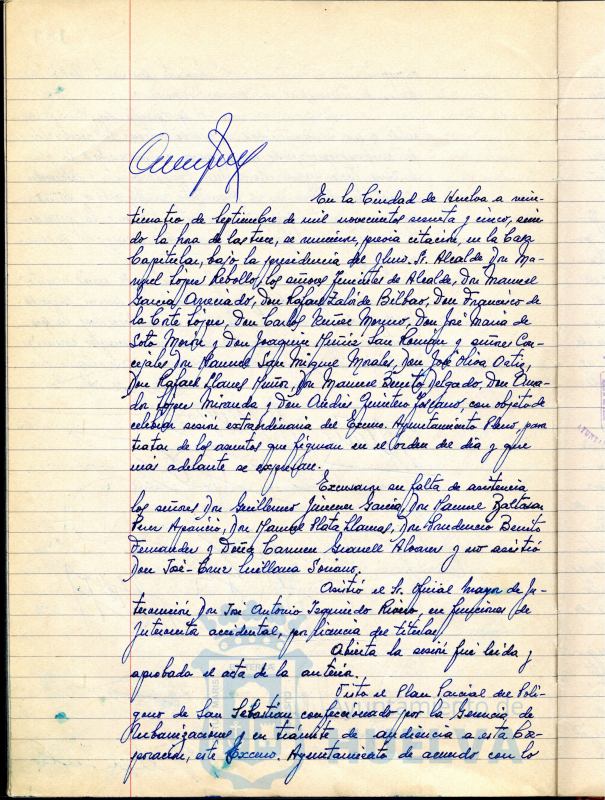 En la Ciudad de Huelva a vein-
ticuatro, de Septiembre de mil novecientos sesenta y cinco, sien-
do la hora de las trece, se reunieron, previa citación, en la Casa
Capitular, bajo la presidencia del Iltmo. Sr. Alcalde, Don Ma-
nuel López Rebollo, los señores Tenientes de Alcalde, Don Manuel
García Don Rafael Bilbao, Don Francisco de
la Corte López, Don Carlos Núñez Moreno, Don José María de
Soto Morón y Don Joaquín Muñiz San Román y señores Con-
cejales Don Manuel San Miguel Morales, Don José Oliva Ortiz,
Don Rafael Llanes Muñoz, Don Manuel Benito Delgado, Don Ama-
dor López Miranda y Don Andrés Quintero Toscano, con objeto de
celebrar sesión extraordinaria del Excmo. Ayuntamiento Pleno, para
tratar de los asuntos que figuran en el orden del día y que
mas adelante se expresan.
Excusaron su falta de asistencia
los señores Don Guillermo Jimenez García, Don Manuel Baltasar
Perez Aparicio, Don Manuel Plata Llamas, Don Prudencio Benito
Fernandez y Doña Carmen Granell Alvarez y no asistió
Don José-Cruz Soriano.
Asistió el Sr. Oficial Mayor de In-
tervención Don José Antonio Izquierdo Rivero, en funciones de
Interventor accidental, por licencia del titular.
Abierta la sesión fué leida y
aprobada el acta de la anterior.
Visto el Plan Parcial del Polí-
gono de San Sebastián confeccionado por la Gerencia de
Urbanizaciones y en trámite de audiencia a esta Cor-
poración, este Excmo. Ayuntamiento de acuerdo con lo
Ayuntamiento de
HUELVA